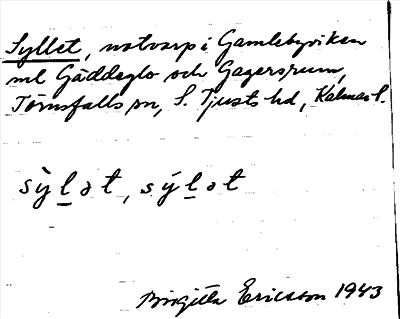 Syllet, notvarp i Gamlebyviken
ml Gäddeglo och Gagersrum,
Törnsfalls sn, S. Tjusts hd, Kalmar l.
sỳl̲ət, sýl̲ət
Birgitta Ericsson 1943